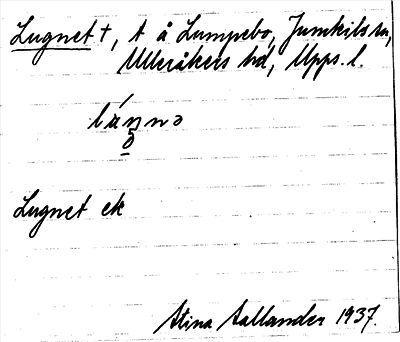 Lugnet †, t å Lumpebo, Jumkils sn,
Ulleråkers hd, Upps. l.
Lugnet ek
Stina Hallander 1937.